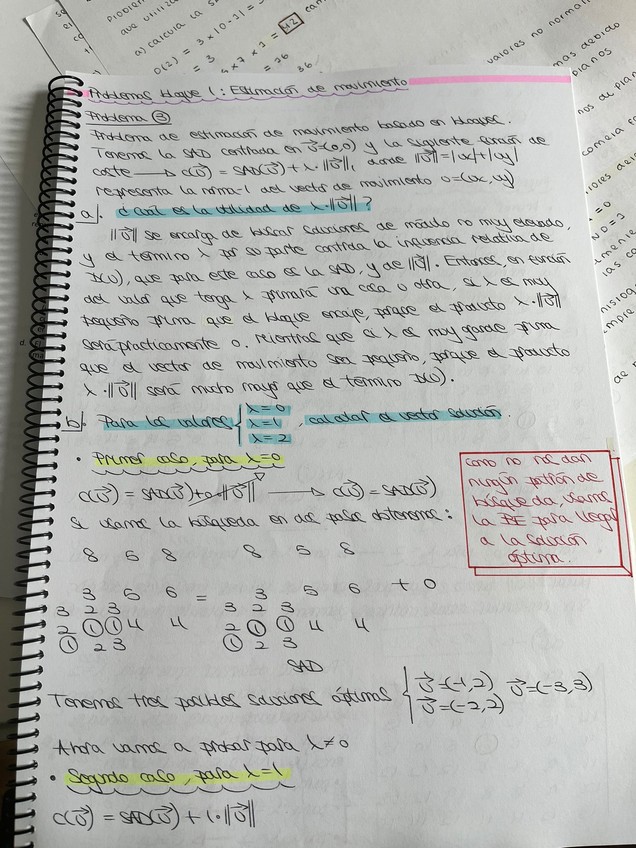 Problemas bloque 1: Estimación de movimiento
Problema ③
Problema de estimación de movimiento basado en bloques.
Tenemos la SAD centrada en v⃗=(0,0) y la siguiente función de
coste → c(v⃗) = SAD(v⃗) + λ·||v⃗||, donde ||v⃗||=|vx|+|vy|
representa la norma-1 del vector de movimiento v=(vx, vy)
a). ¿Cuál es la utilidad de λ·||v⃗||?
||v⃗|| se encarga de buscar soluciones de módulo no muy elevado,
y el termino λ por so parte controla la influencia relativa de
D(v), que para este caso es la SAD, y de ||v⃗||. Entonces, en función
del valor que tenga λ primará una cosa u otra, si λ es muy
pequeño prima que el bloque encaje, porque el producto λ·||v⃗||
será practicamente 0. Mientras que si λ es muy grande prima
que el vector de movimiento sea pequeño, porque el producto
λ·||v⃗|| será mucho mayor que el termino D(v).
b). Para los valores { λ=0
λ=1
λ=2
, calcular el vector solución.
· Primer caso, para λ=0
c(v⃗) = SAD(v⃗)+0·||v⃗|| → c(v⃗) = SAD(v⃗)
Si usamos la búsqueda en dos pasos obtenemos:
como no nos dan
ningún patrón de
búsqueda, usamos
la para llegar
a la solución
óptima.
8 5 8 8 5 8
3 5 6 = 3 5 6 + 0
3 2 3 3 2 3
2 ① ① 4 4 2 ① ① 4 4
① 2 3 ① 2 3
SAD
Tenemos tres posibles soluciones óptimas { v⃗=(-1,2) v⃗=(-3,3)
v⃗=(-2,2)
Ahora vamos a probar para λ≠0
· Segundo caso, para λ=1
c(v⃗) = SAD(v⃗) + 1·||v⃗||
a) calcula la
O(2) = 3 × 10
valores no normali